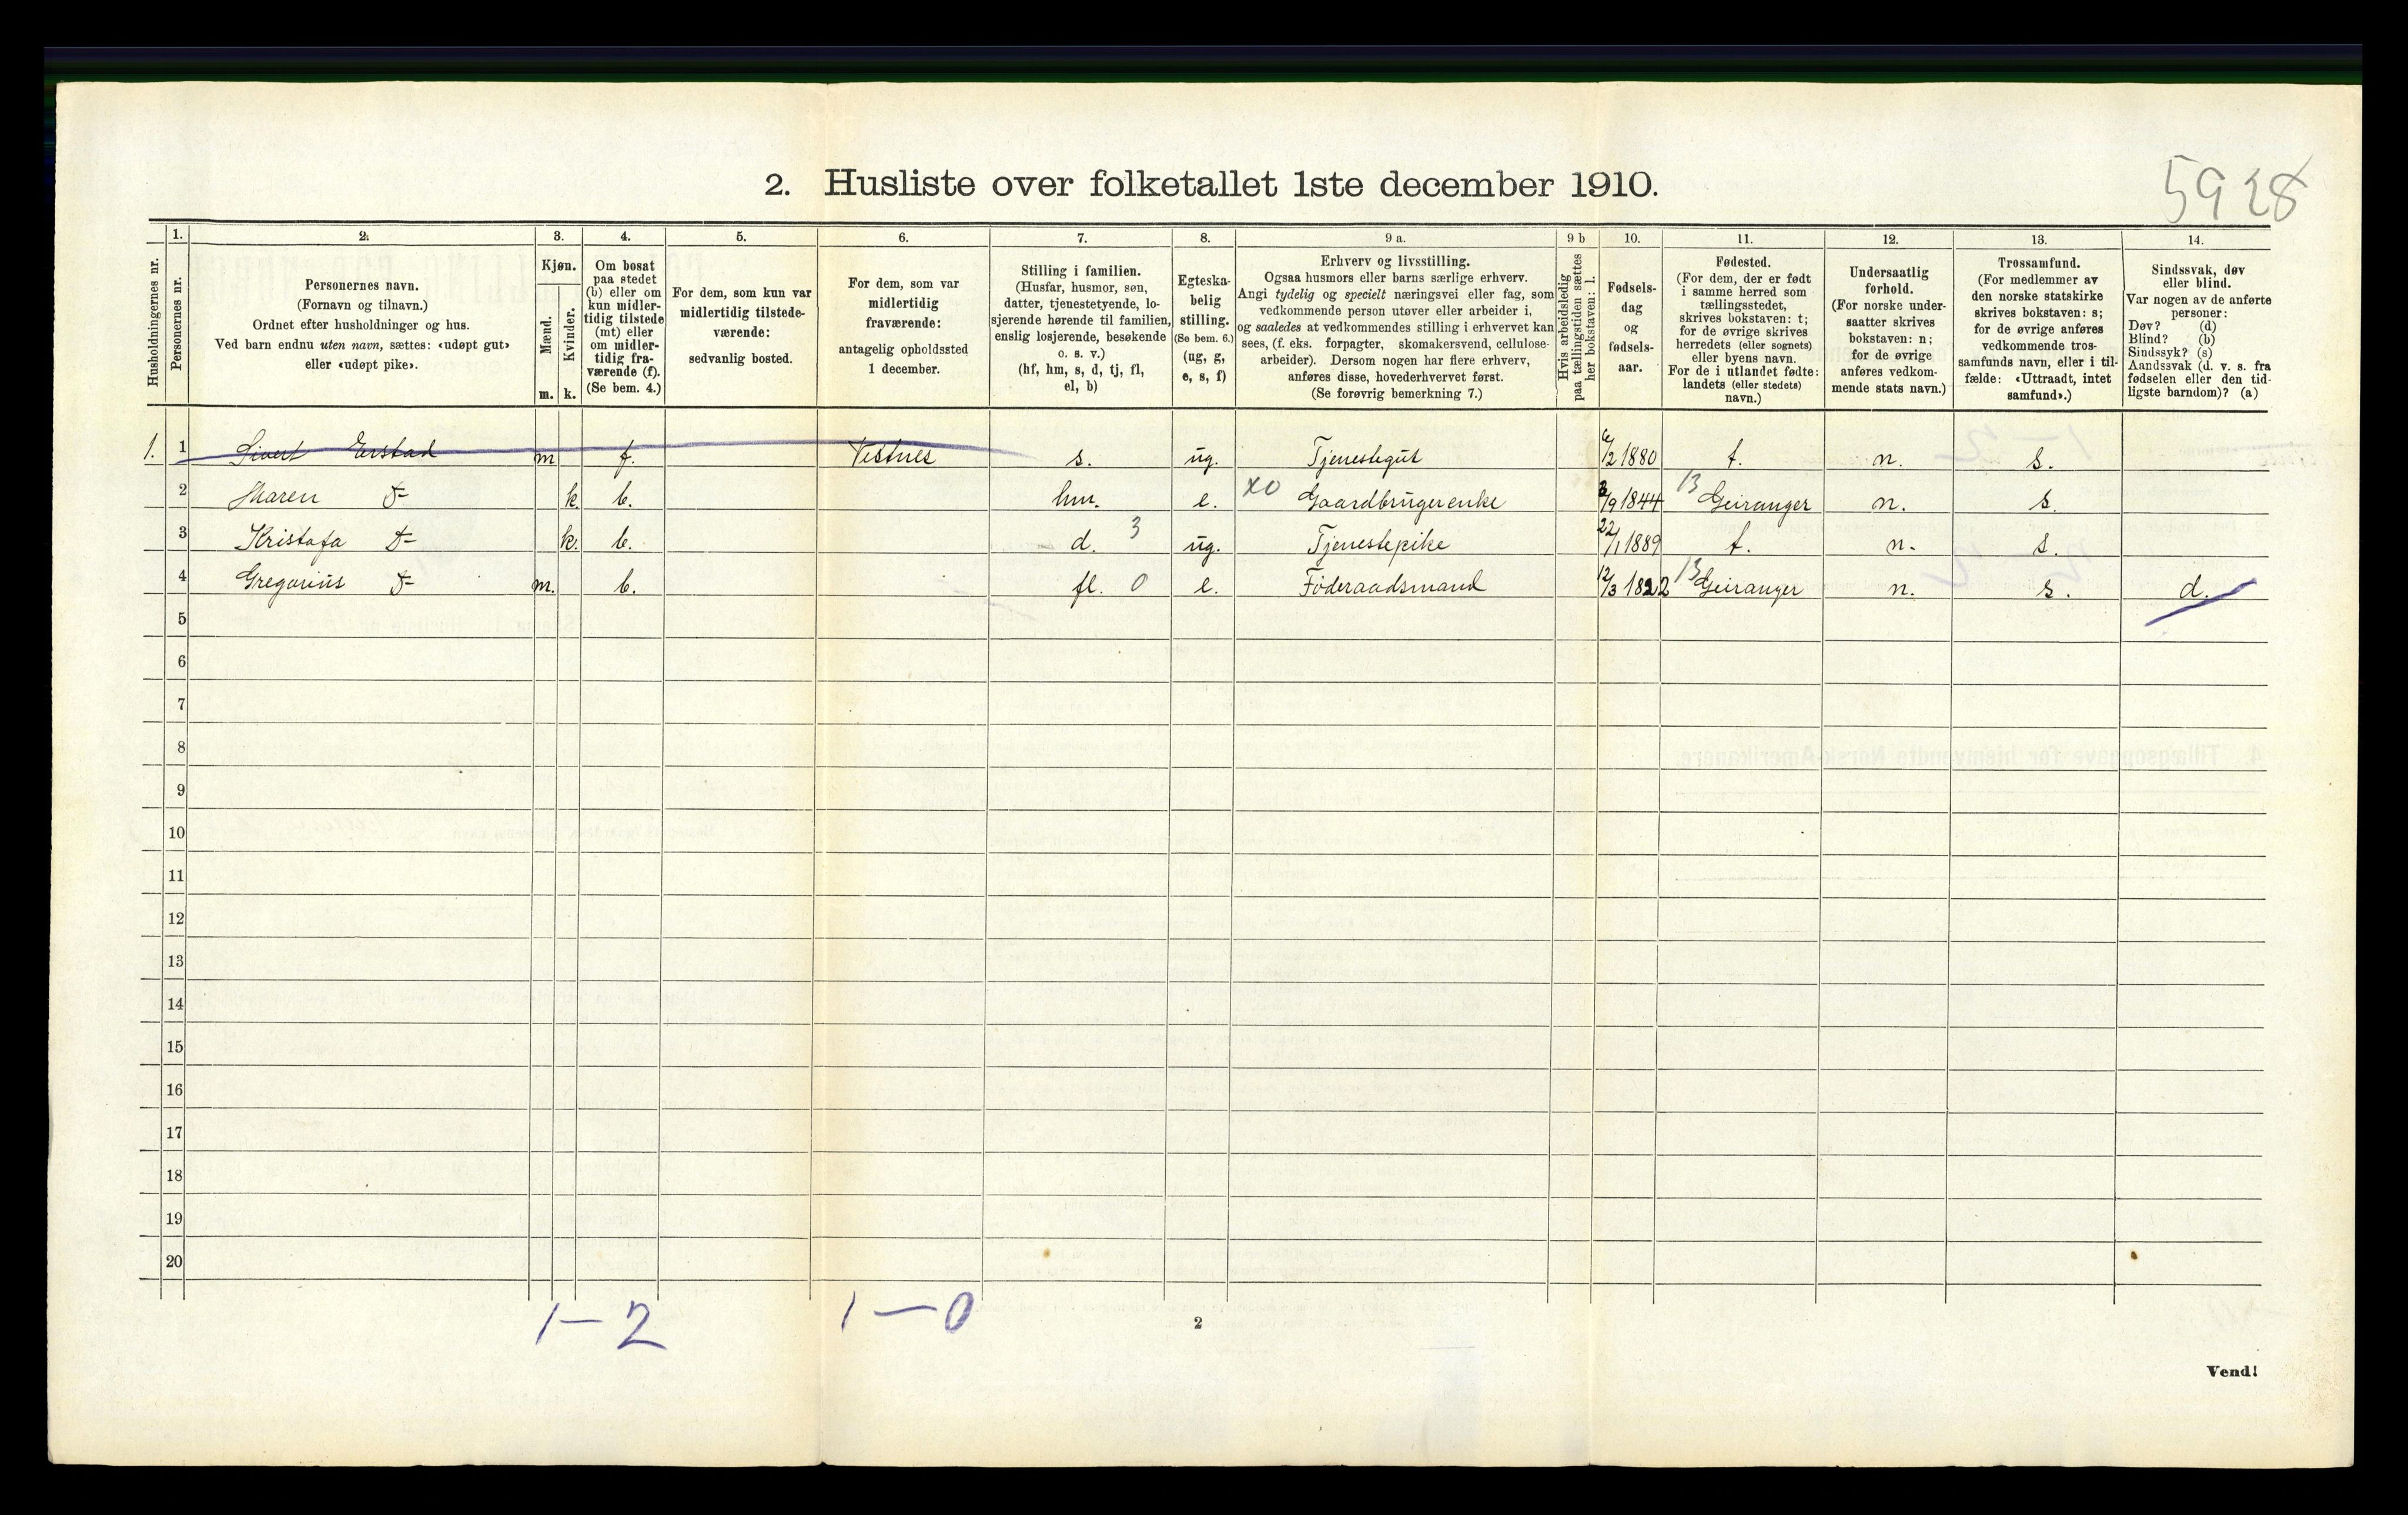 2. Husliste over folketallet 1ste december 1910.
5928
Husholdningernes nr.
1.
Personernes nr.
2.
Personernes navn.
(Fornavn og tilnavn.)
Ordnet efter husholdninger og hus.
Ved barn endnu uten navn, sættes: «udøpt gut»
eller «udøpt pike».
3.
Kjøn.
Mænd.
Kvinder.
m. k.
4.
Om bosat
paa stedet
(b) eller om
kun midler-
tidig tilstede
(mt) eller
om midler-
tidig fra-
værende (f).
(Se bem. 4.)
5.
For dem, som kun var
midlertidig tilstede-
værende:
sedvanlig bosted.
6.
For dem, som var
midlertidig
fraværende:
antagelig opholdssted
1 december.
7.
Stilling i familien.
(Husfar, husmor, søn,
datter, tjenestetyende, lo-
sjerende hørende til familien,
enslig losjerende, besøkende
o. s. v.)
(hf, hm, s, d, tj, fl,
el, b)
8.
Egteska-
belig
stilling.
(Se bem. 6.)
(ug, g,
e, s, f)
9 a.
Erhverv og livsstilling.
Ogsaa husmors eller barns særlige erhverv.
Angi tydelig og specielt næringsvei eller fag, som
vedkommende person utøver eller arbeider i,
og saaledes at vedkommendes stilling i erhvervet kan
sees, (f. eks. forpagter, skomakersvend, cellulose-
arbeider). Dersom nogen har flere erhverv,
anføres disse, hovederhvervet først.
(Se forøvrig bemerkning 7.)
9 b
Hvis arbeidsledig
paa tællingstiden sættes
her bokstaven: l.
10.
Fødsels-
dag
og
fødsels-
aar.
11.
Fødested.
(For dem, der er født
i samme herred som
tællingsstedet,
skrives bokstaven: t;
for de øvrige skrives
herredets (eller sognets)
eller byens navn.
For de i utlandet fødte:
landets (eller stedets)
navn.)
12.
Undersaatlig
forhold.
(For norske under-
saatter skrives
bokstaven: n;
for de øvrige
anføres vedkom-
mende stats navn.)
13.
Trossamfund.
(For medlemmer av
den norske statskirke
skrives bokstaven: s;
for de øvrige anføres
vedkommende tros-
samfunds navn, eller i til-
fælde: «Uttraadt, intet
samfund».)
14.
Sindssvak, døv
eller blind.
Var nogen av de anførte
personer:
Døv? (d)
Blind? (b)
Sindssyk? (s)
Aandssvak (d. v. s. fra
fødselen eller den tid-
ligste barndom)? (a)
1. 1 Sivert Erstad m f. Vestnes s. ug. Tjenestegut 6/2 1880 t. n. s.
2 Maren D- k. b. hm. e. X0 Gaardbrugerenke /9 1844 13 Geiranger n. s.
3 Kristofa D- k. b. d. 3 ug. Tjenestepike 22/1 1889 t. n. s.
4 Gregorius D- m. b. fl. 0 e. Føderaadsmand 12/3 1822 13 Geiranger n. s. d.
5
6
7
8
9
10
11
12
13
14
15
16
17
18
19
20
1 — 2 1 — 0
2
Vend!